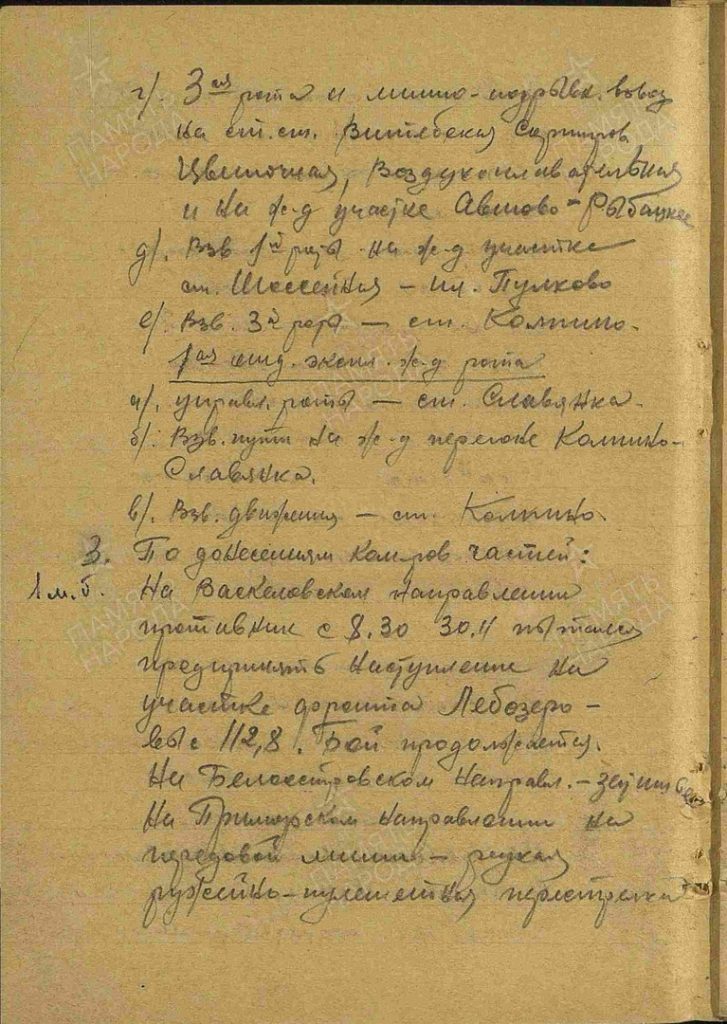 г/. 3ая рота и минно-подрывн. взвод
на ст.ст. Витебская Сортиров
Цветочная, Воздухоплавательная
и на ж-д участке Автово-Рыбацкое
д/. Взв 1й роты на ж-д участке
ст. Шоссейная – пл. Пулково
е/. Взв. 3й роты – ст. Колпино.
1ая отд. экспл. ж-д рота
а/. управл. роты – ст. Славянка.
б/. Взв. пути на ж-д перегоне Колпино-
Славянка.
в/. Взв. движения – ст. Колпино.
3. По донесениям ком-ров частей:
1 м.б. На Васкеловском направлении
противник с 8.30 30.11 пытался
предпринять наступление на
участке дорога Лебозеро –
выс 112,8. Бой продолжается.
На Белоостровском направл. – затишье
На Приморском направлении на
передовой линии – редкая
ружейно-пулеметная перестрелка
ПАМЯТЬ НАРОДА